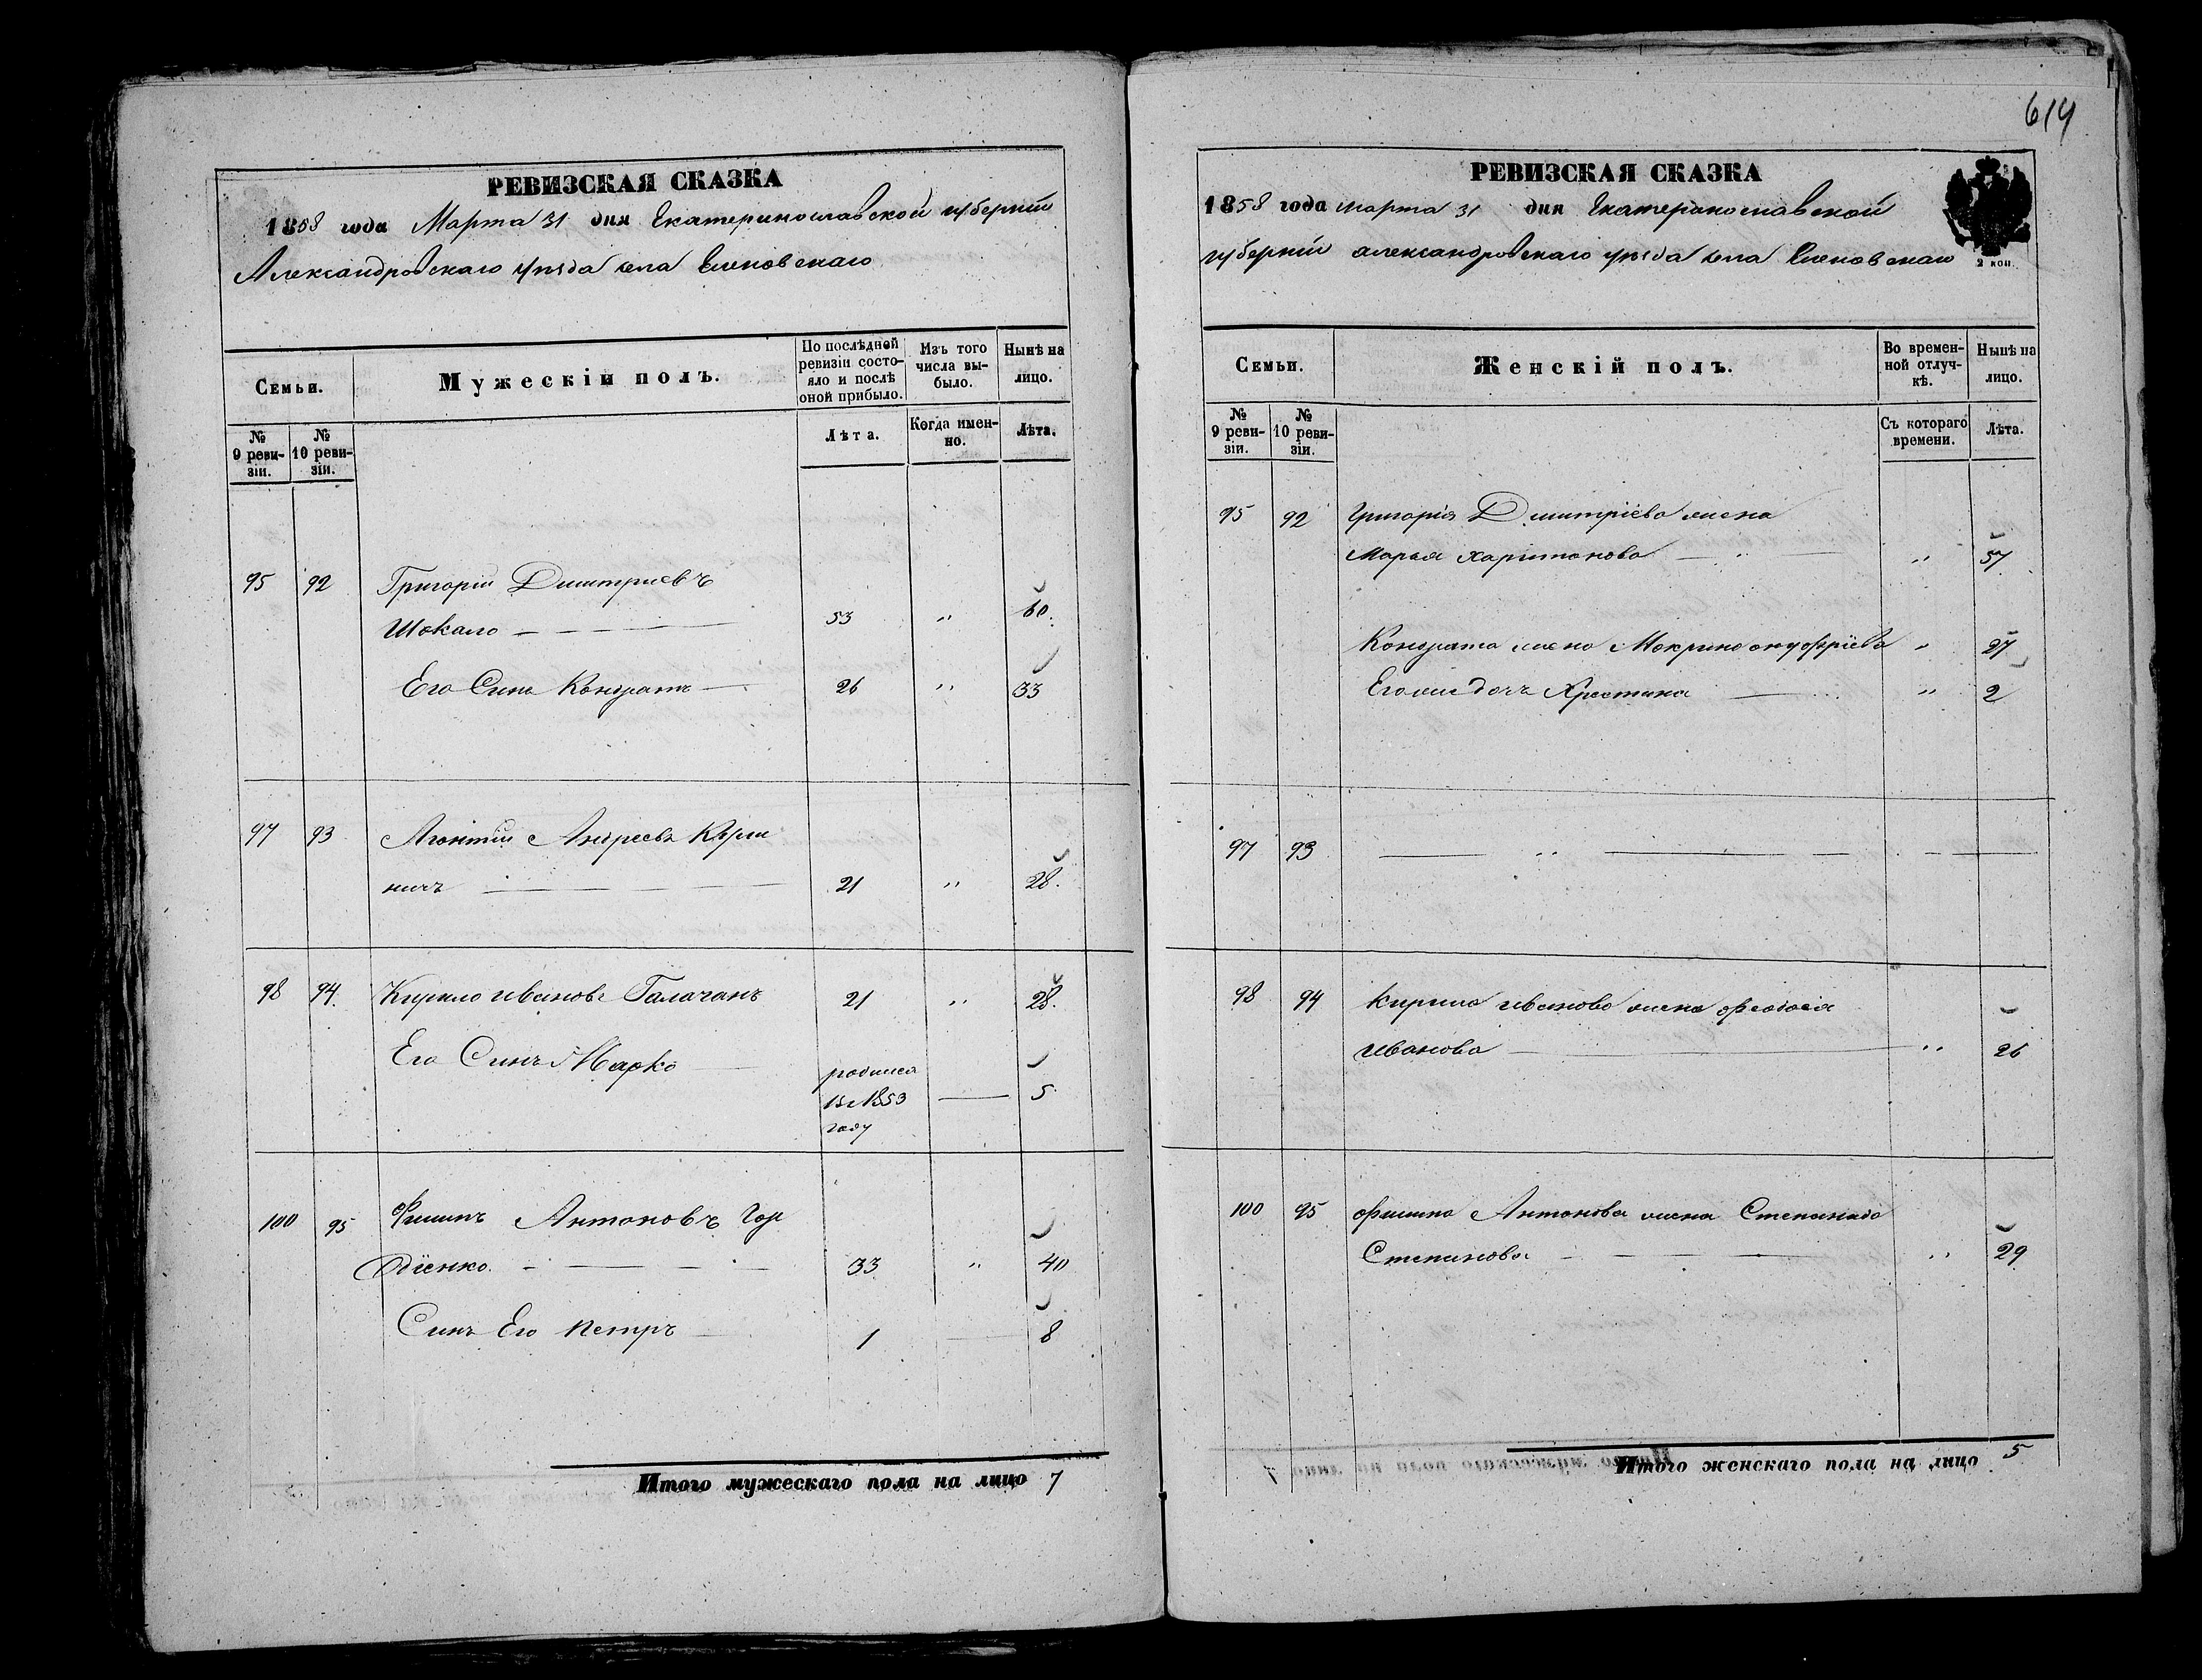 614
РЕВИЗСКАЯ СКАЗКА
1858 года Марта 31 дня Екатеринославской губерніи
Александровскаго уѣзда села Еленовскаго
Семьи.
Мужескій полъ.
По послѣдней ревизіи состояло и послѣ оной прибыло.
Изъ того числа выбыло.
Нынѣ на лицо.
№ 9 ревизіи.
№ 10 ревизіи.
Лѣта.
Когда именно.
Лѣта.
95 92 Григорій Дмитриевъ
Шокало 53 " 60.
Его Синъ Кондратъ 26 " 33
97 93 Андреевъ Кири
ничъ 21 " 28.
98 94. Кирило Ивановъ Галаганъ 21 " 28.
Его Синъ Марко родился 5
въ 1853
году
100 95 Филипъ Антоновъ Гор
діенко 33 " 40
Синъ Его Петръ 1 8
Итого мужескаго пола на лицо 7
РЕВИЗСКАЯ СКАЗКА
1858 года Марта 31 дня Екатеринославской
губерніи Александровскаго уѣзда села Еленовскаго
2 коп.
Семьи.
Женскій полъ.
Во временной отлучкѣ.
Нынѣ на лицо.
№ 9 ревизіи.
№ 10 ревизіи.
Съ котораго времени.
Лѣта.
95 92 Григорія Дмитріева жена
Марья Харитонова " 57
Кондрата жена Мокрина онуфріева " 27
Его же дочь Христина " 2
97 93 "
98 94 Кирила Иванова жена Феодосія
Иванова " 26
100 95 Филипа Антонова жена Степанида
Степанова " 29
Итого женскаго пола на лицо 5